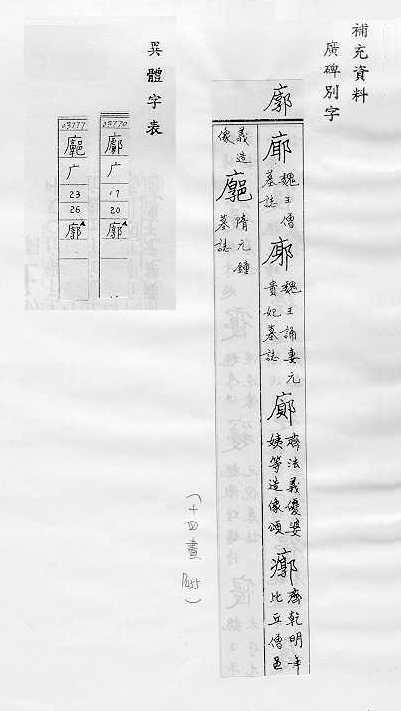 補充資料
廣碑別字
廓
廓 魏王僧墓誌
廓 魏王誦妻元貴妃墓誌
廓 齊法義優婆姨等造像頌
齊乾明年比丘僧邑
義造像
隋元鍾墓誌
(十四畫 P255)
異體字表
03770
广
17
20
廓
03777
广
23
26
廓